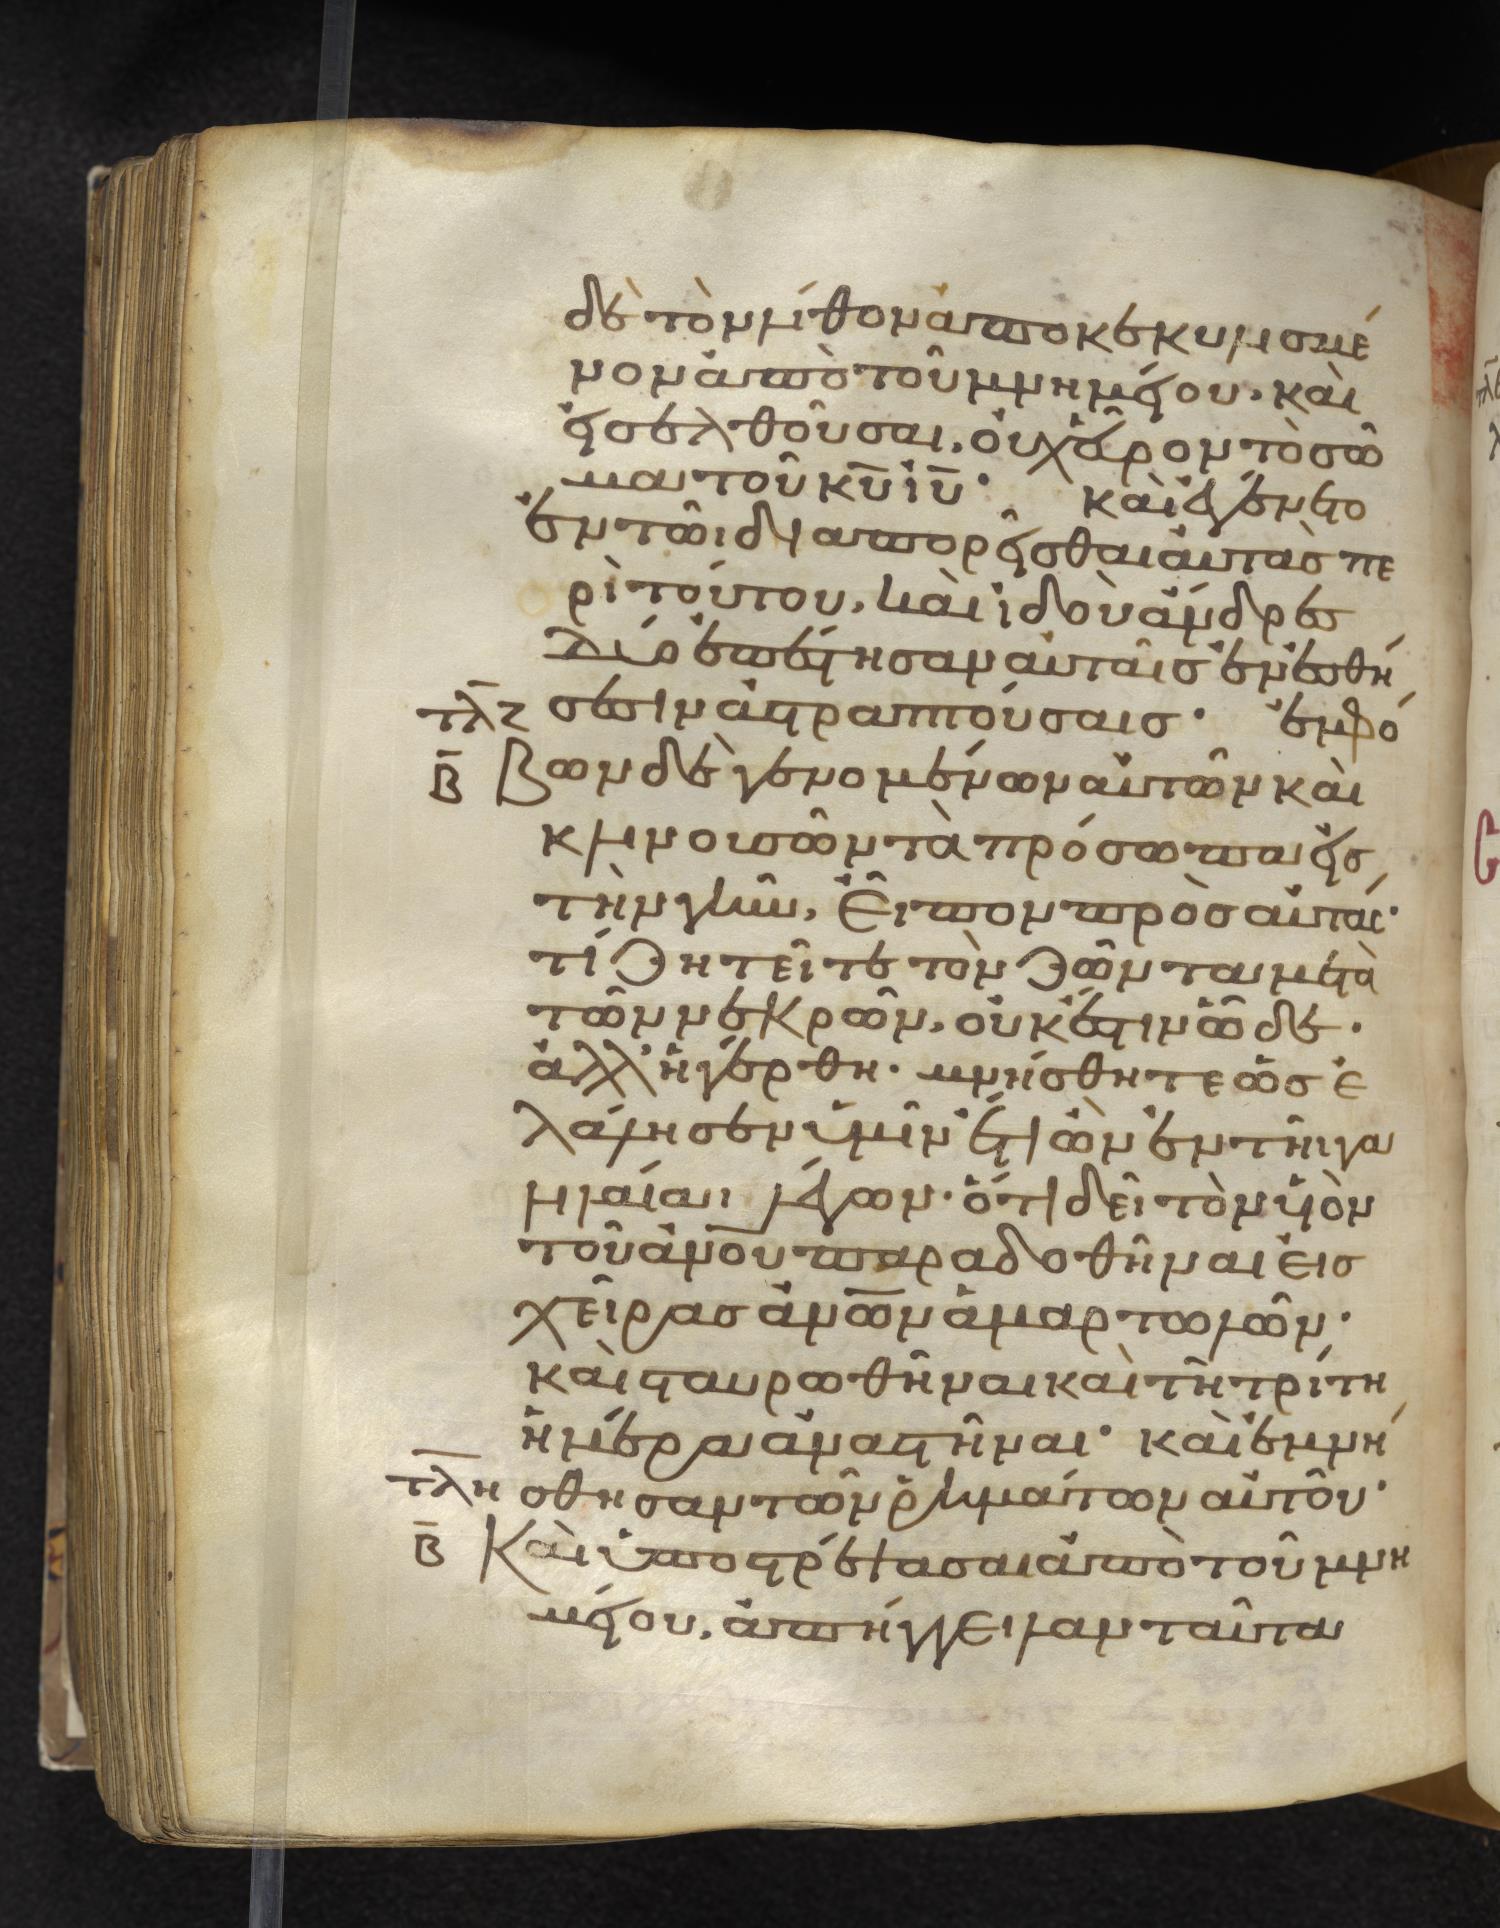 δὲ τὸν λίθον ἀποκεκυλισμέ
νον ἀπὸ τοῦ μνημείου, καὶ
εἰσελθοῦσαι, οὐχ εὗρον τὸ σῶ
μα τοῦ κ̅υ̅ ἰ̅υ̅· καὶ ἐγένετο
ἐν τῶι διαπορεῖσθαι αὐτὰς πε
ρὶ τούτου, καὶ ἰδοὺ ἄνδρες
δύο ἐπέστησαν αὐταῖς ἐν ἐσθή
τλζ σεσιν ἀστραπτούσαις· ἐμφό
β βων δὲ γενομένων αὐτῶν καὶ
κλινουσῶν τὰ πρόσωπα εἰς
τὴν γῆν, εἶπον πρὸς αὐτάς·
τί ζητεῖτε τὸν ζῶντα μετὰ
τῶν νεκρῶν, οὐκ ἔστιν ὧδε·
ἀλλ' ἠγέρθη· μνήσθητε ὡς ἐ
λάλησεν ὑμῖν ἔτι ὢν ἐν τῆι γα
λιλαίαι λέγων· ὅτι δεῖ τὸν υἱὸν
τοῦ ἀ̅ν̅ο̅υ̅ παραδοθῆναι εἰς
χεῖρας ἀ̅ν̅ω̅ν̅ ἁμαρτωλῶν·
καὶ σταυρωθῆναι καὶ τῆ τρίτη
ἡμέρα ἀναστῆναι· καὶ ἐμνή
τλη σθησαν τῶν ῥημάτων αὐτοῦ·
β Καὶ ὑποστρέψασαι ἀπὸ τοῦ μνη
μείου, ἀπήγγειλαν ταῦτα